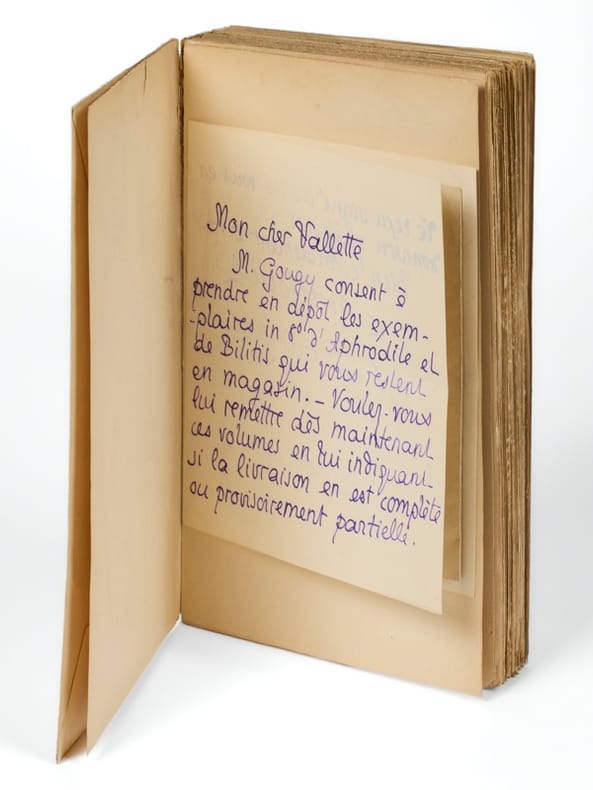 Mon cher Vallette
M. Gougy consent à
prendre en dépôt les exem-
-plaires in 8º d'Aphrodite et
de Bilitis qui vous restent
en magasin. _ Voulez-vous
lui remettre dès maintenant
ces volumes en lui indiquant
si la livraison en est complète
ou provisoirement partielle.